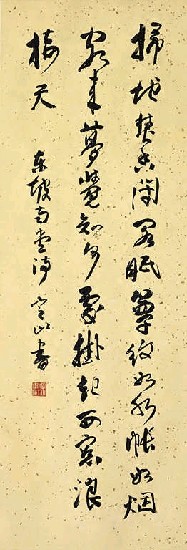 掃地焚香閉閣眠簟紋如水帳如烟
客来夢覺知何處掛起西窗浪
接天
东坡南堂诗
書